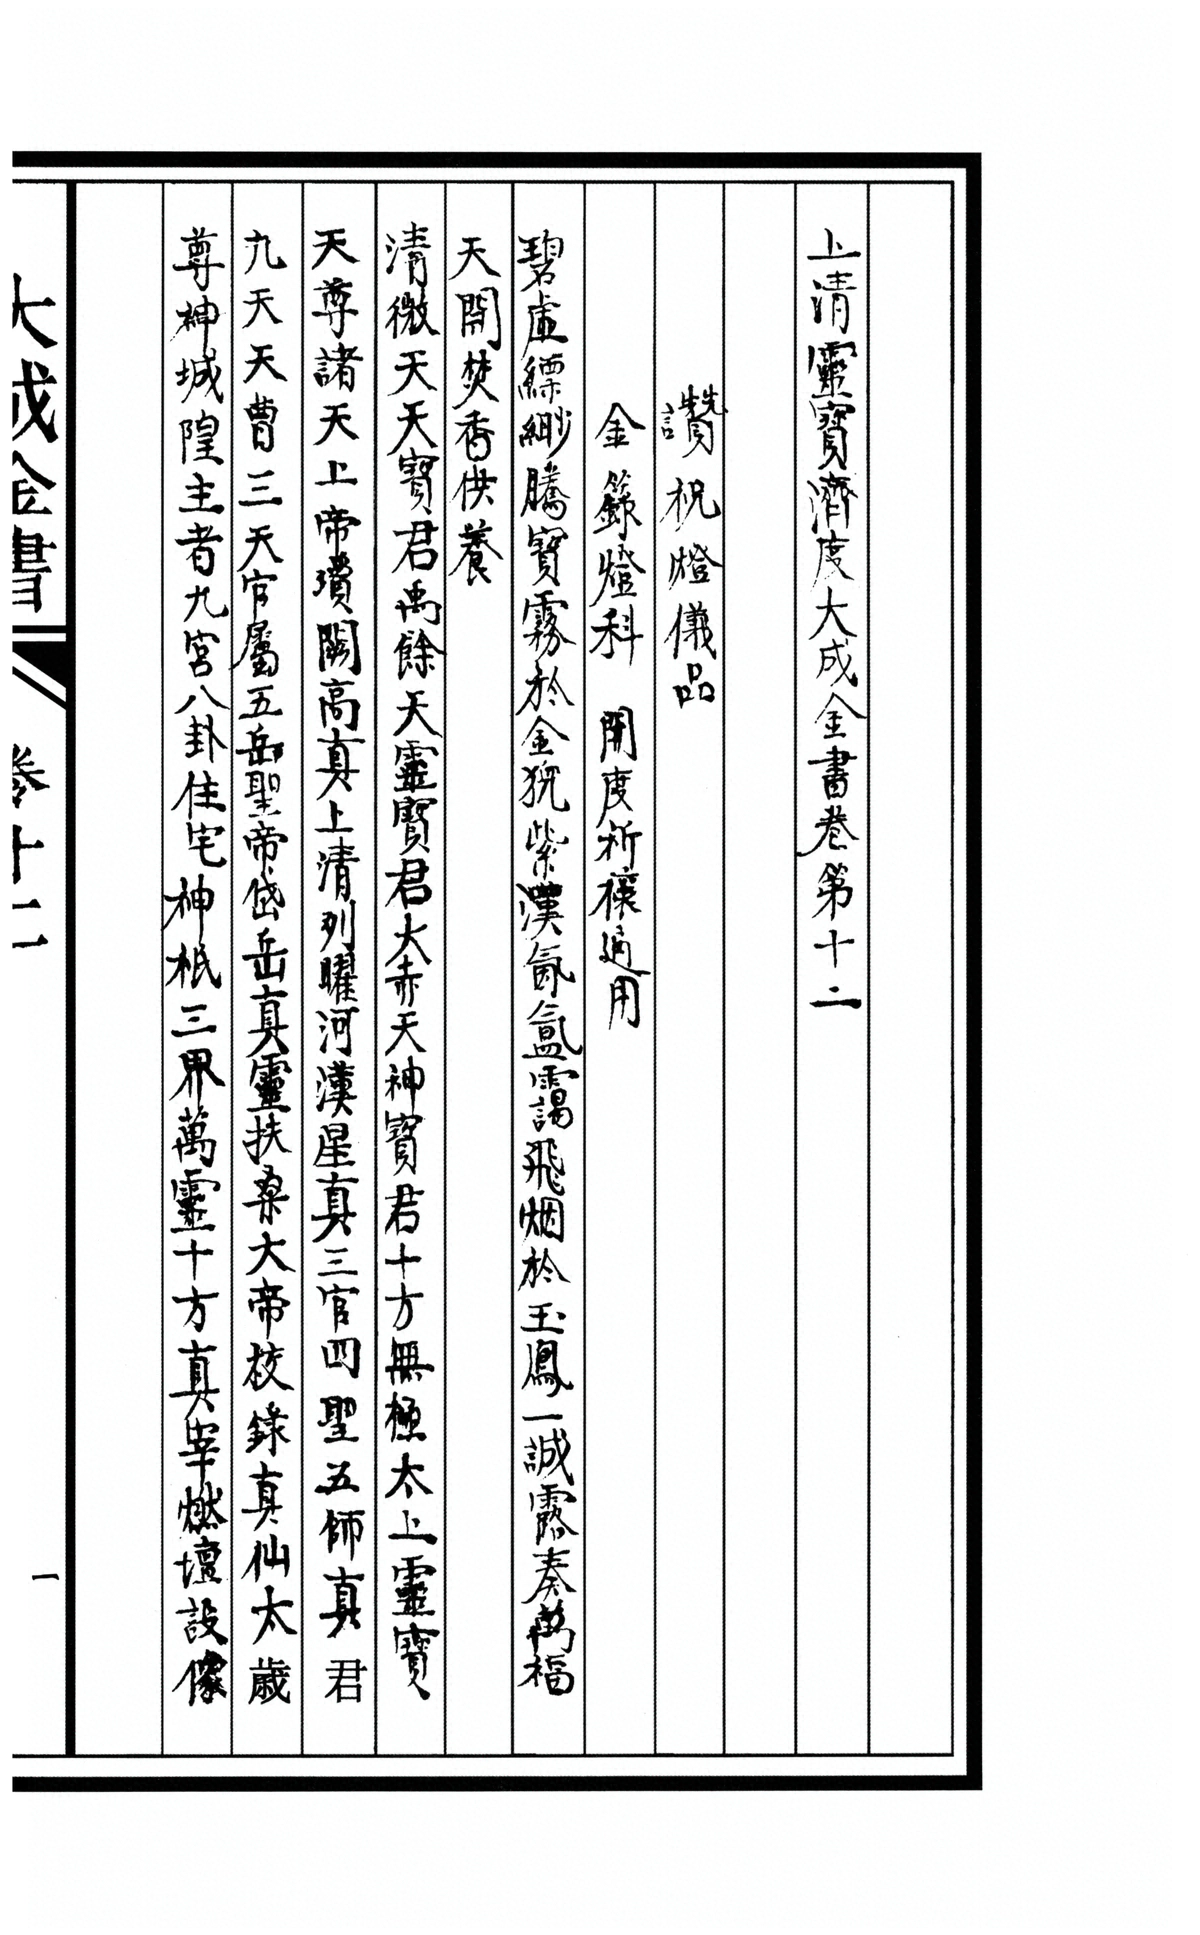 上清靈寶濟度大成金書卷第十二
讚祝燈儀品
金籙燈科　開度祈禳通用
碧虛縹緲騰寶霧於金猊紫漢氤氲靄飛烟於玉鳳一誠露奏萬福
天開焚香供養
清微天天寶君禹餘天靈寶君大赤天神寶君十方無極太上靈寶
天尊諸天上帝瓊闕高真上清列曜河漢星真三官四聖五師真君
九天天曹三天官屬五岳聖帝岱岳真靈扶桑大帝校錄真仙太歲
尊神城隍主者九宮八卦住宅神祇三界萬靈十方真宰燃壇設像
大成金書
卷十二
一